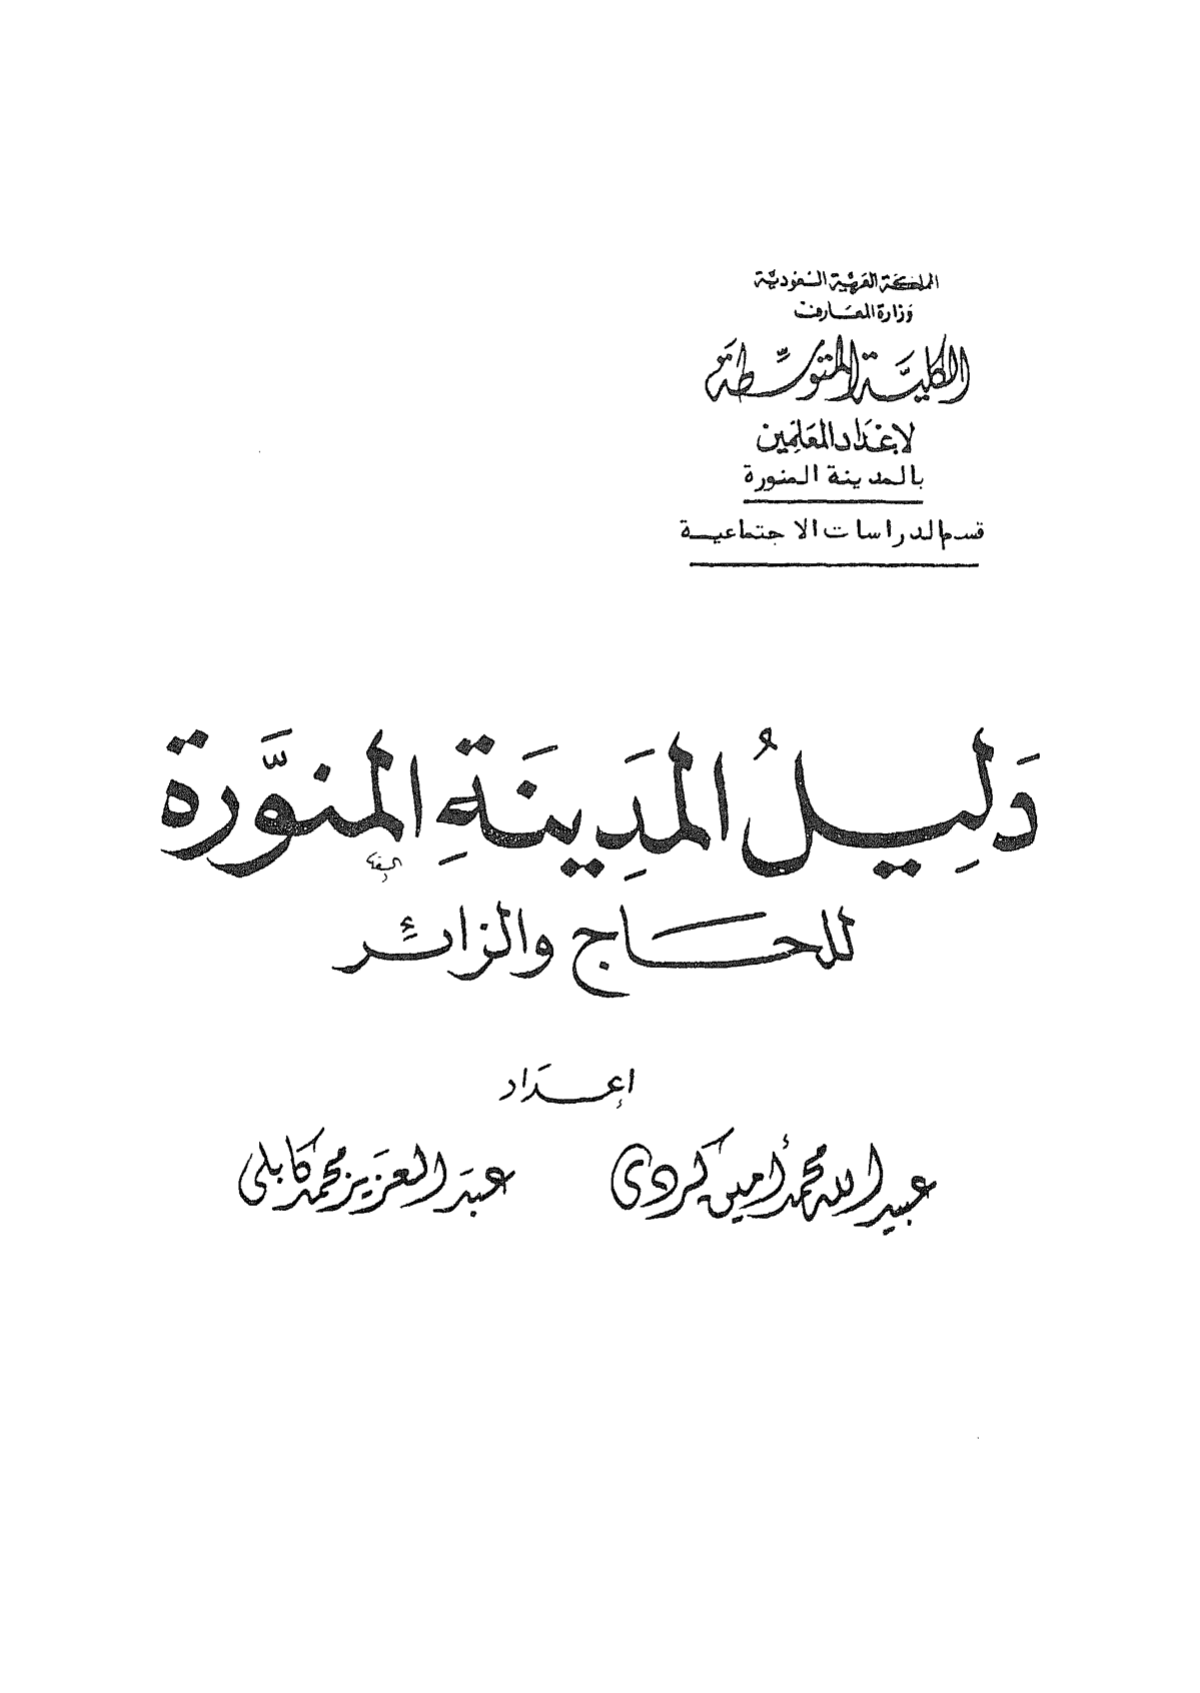 المملكة العربية السعودية
وزارة المعارف
الكليَّة المتوسِّطة
لإعْدَاد المعَلمين
بالمدينة المنورة
قسم الدراسات الاجتماعية
دَلِيلُ المَدِينَةِ المنوَّرة
للحاج والزائِر
إعداد
عبيد الله محمد أمين كردي
عبد العزيز محمد كابلي